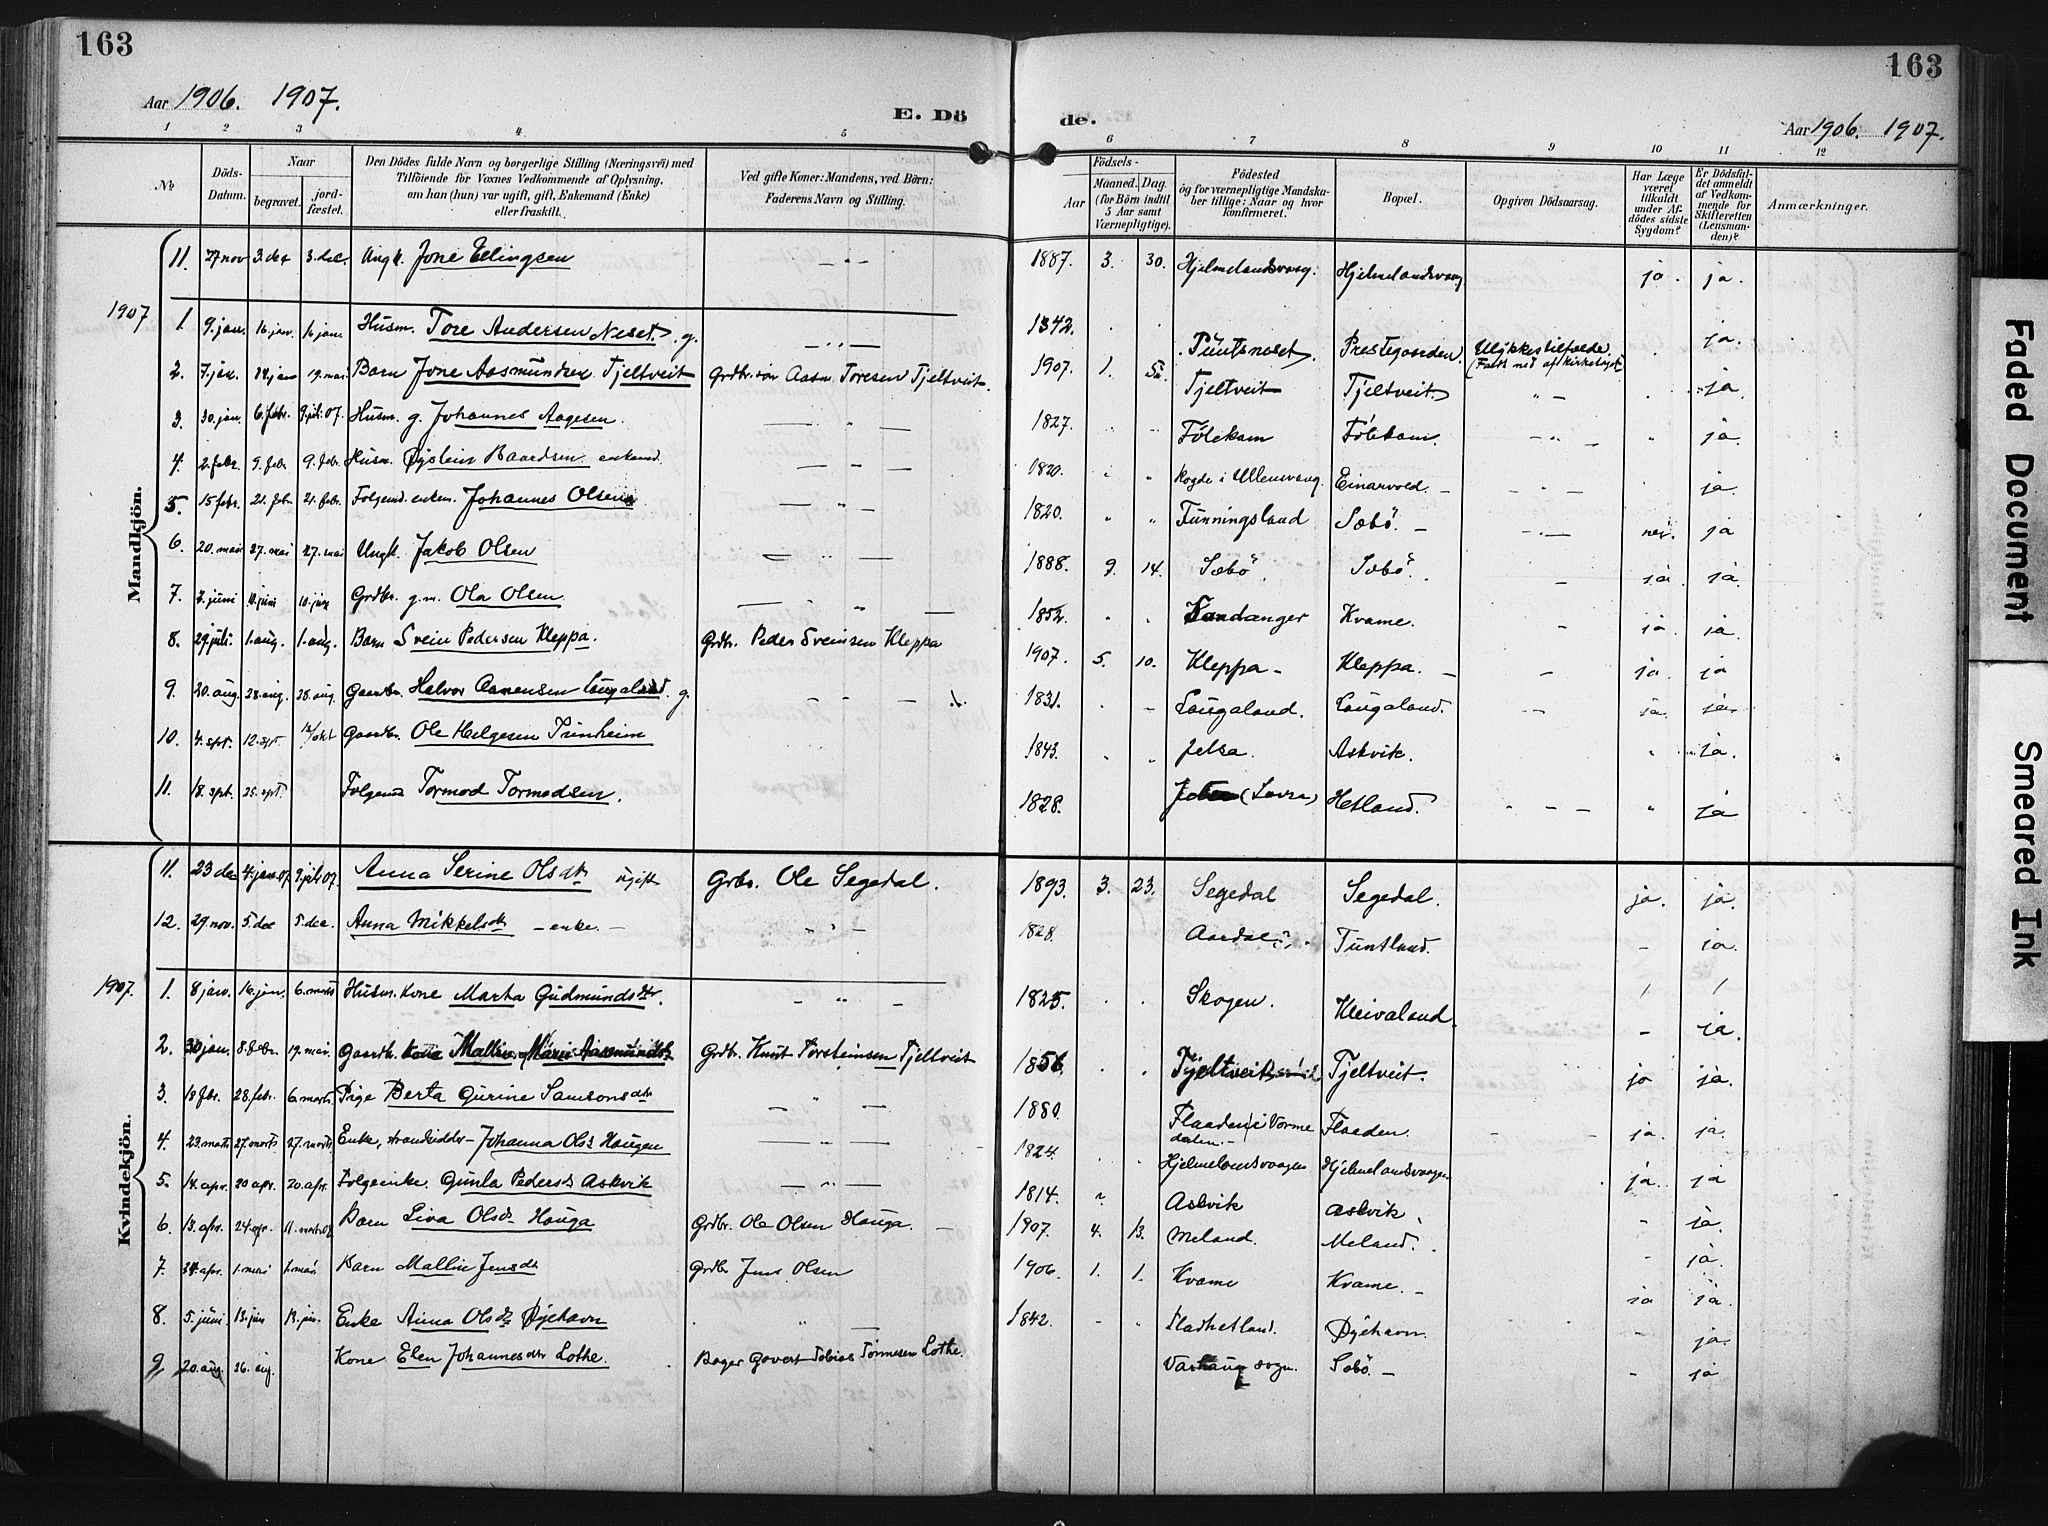 163
163
Aar 1906. 1907.
E. Dö
de.
Aar 1906. 1907.
1 2 3 4 5 6 7 8 9 10 11 12
No
Döds-Datum.
Naar
begravet.
jord-fæstet.
Den Dödes fulde Navn og borgerlige Stilling (Næringsvei) med
Tilföiende for Voxnes Vedkommende af Oplysning,
om han (hun) var ugift, gift, Enkemand (Enke)
eller fraskilt.
Ved gifte Koner: Mandens, ved Börn:
Faderens Navn og Stilling.
Födsels-
Aar
Maaned. Dag.
(for Börn indtil
5 Aar samt
Værnepligtige).
Födested
og for værnepligtige Mandska-
ber tillige: Naar og hvor
konfirmeret.
Bopæl.
Opgiven Dödsaarsag.
Har Læge
været
tilkaldt
under Af-
dödes sidste
Sygdom?
Er Dödsfal-
det anmeldt
af Vedkom-
mende for
Skifteretten
(Lensman-
den)?
Anmærkninger.
Mandkjön.
11. 27 nov 3. dec 3. dec. Ungk. Jone Edingsen — „ — 1887. 3. 30. Hjelmelandsvaag. Hjelmelandsvaag ja. ja.
1907
1. 9. jan. 16. jan. 16 jan. Husm. Tore Andersen Neset. g. — „ — 1842. Puntsneset Prestegaarden. Ulykkestilfælde. ja.
2. 7. jan. 19. mai Barn Jone Aasmundsen Tjeltveit Grdbr. Aasm Toresen Tjeltveit. 1907. 1. Tjeltveit Tjeltveit ja.
3. 30. jan. 6. febr. 9. juli. 07. Husm. g. Johannes Aagesen. 1827. Fölekam ja.
4. 2. febr. 9. febr. 9. febr. Husm. Øystein Baardsen enkemd. 1820. i Ullensvang. Einarvold. ja.
5. 15 febr. 21. febr. 21. febr. Folgemd. enkem. Johannes Olsen 1820. Funningsland Sæbö. nei. ja
6. 20. mai 27. mai 27. mai Ungk. Jakob Olsen 1888. 9. 14. Sæbö. Sæbö. ja. ja.
7. juni 10. jun Grdbr. g. m. Ola Olsen 1852. Kvame. ja. ja.
8. 29. juli. 1. aug. 1. aug. Barn Svein Pedersen Kleppa. Grdbr. Peder Sveinsen Kleppa 1907. 5. 10. Kleppa Kleppa. ja. ja
9. 20. aug. 28. aug. 28. aug. Gaardbr. Halvor Aanensen Laugaland. g. 1831. Laugaland. Laugaland. ja. ja.
10. 4. spt. 12. spt. 12/okt Gaardbr. Ole Helgesen Trinheim 1843. Jelsa. Askvik. ja.
11. 18. spt. 25. spt. Folgemd Tormod Tormodsen. 1828. Hetland. ja
Kvindekjön.
11. 23 dec 4. jan. 07. 9. juli 07. Anna Serine Olsdtr ugift Grbr. Ole Segedal. 1893. 3. 23. Segedal Segedal. ja. ja.
12. 29. nov. 5. dec 5. dec. Anna Mikkelsdtr — enke. — 1828. Aardal Tuntland. — ja.
1907.
1. 8 jan. 16. jan. 6. marts Husm. Kone Marta Gudmundsdtr. 1825. Skogen. Kleivaland. — ja.
2. 30 jan. 8. febr. 19. mai. Gaardbr. Kone Mallin Marie Aasmundsdtr Grdbr. Knut Torsteinsen Tjeltveit 1856. Tjeltveit Tjeltveit. ja ja.
3. 18 fbr. 28. febr. 6. marts. Pige Berta Gurine Samsonsdtr 1880. Flaaden i Vorme dalen. Flaeden. ja. ja.
4. 23. marts 27. marts 27. marts. Enke, strandsidder — Johanna Olsd. Haugen 1824. Hjelmelandsvaagen Hjelmelandsvaagen ja. ja
5. 14. apr. 20 apr. 20. apr. Folgeenke. Gunla Pedersd. Askvik 1814. Askvik Askvik ja.
6. 13. apr. 24. apr. 11. marts 08. Barn Liva Olsd. Hauga Grdbr. Ole Olsen Hauga. 1907. 4. 13. Meland. Meland. ja.
7. apr. 1. mai 1. mai Barn Mallin Jensdtr Grdbr Jens Olsen 1906. 1. 1. Kvame Kvame. ja ja.
8. 5. juni 13. jun 13. jun. Enke Anna Olsd. Øyehavn 1842. Fladhetland. Øyehavn. ja.
9. 20. aug 26. aug. Kone Elen Johannesdtr Lothe. Bager Govert Tobias Tönnesen Lothe. Varhaug sogn. Sæbö. — ja
Faded Document
Smeared Ink